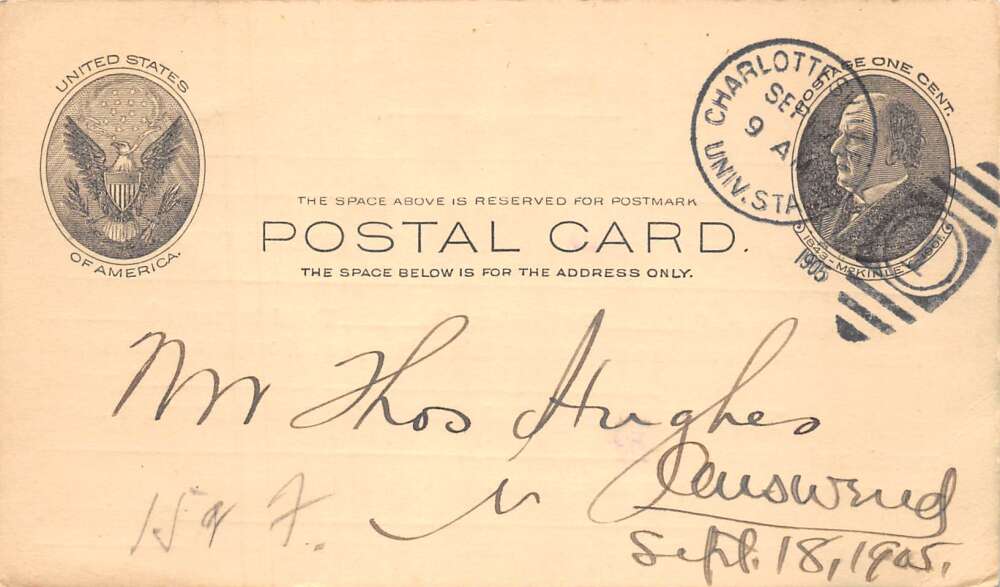 UNITED STATES
OF AMERICA.
CHARLOTTES
SEP
9 A
UNIV. STA
1905
POSTAGE ONE CENT.
1843 - McKINLEY - 1901.
THE SPACE ABOVE IS RESERVED FOR POSTMARK
POSTAL CARD.
THE SPACE BELOW IS FOR THE ADDRESS ONLY.
Mr Thos Hughes
Answered
Sept. 18, 1905.